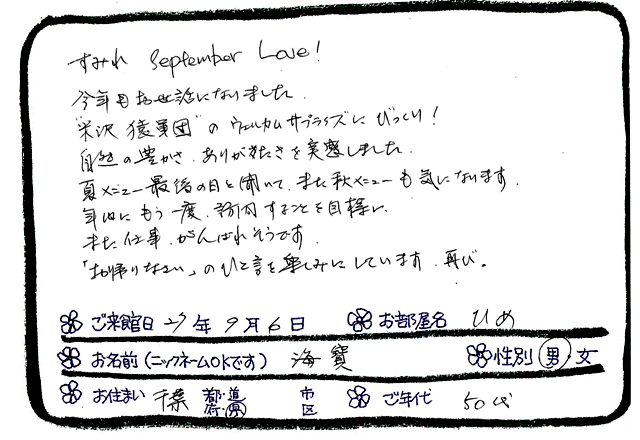 すみれ September Love!
今年もお世話になりました.
"米沢 猿軍団"の ウェルカムサプライズに びっくり!
自然の豊かさ、ありがたさを実感しました.
夏メニュー最後の日と聞いて、また秋メニューも気になります.
年内にもう一度、訪問することを目標に.
また仕事、がんばれそうです.
「お帰りなさい」のひと言を楽しみにしています. 再び。
ご来館日 27年 9月 6日 お部屋名 ひめ
お名前(ニックネームOKです) 海寶 性別 男・女
お住まい 千葉 都・道 府・県 市 区 ご年代 50代